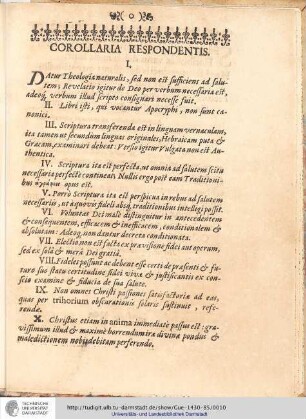 COROLLARIA RESPONDENTIS.
I.
DAtur Theologia naturalis, sed non est sufficiens ad salu-
tem; Revelatio igitur de Deo per verbum necessaria est,
adeoq; verbum illud scripto consignari necesse fuit.
II. Libri isti, qui vocantur Apocryphi, non sunt ca-
nonici.
III. Scriptura transferenda est in linguam vernaculam,
ita tamen ut secundum linguas originales, Hebraicam puta &
Græcam, examinari debeat: Versio igitur Vulgata non est Au-
thentica.
IV. Scriptura ita est perfecta, ut omnia ad salutem scitu
necessaria perfecte contineat: Nullis ergo post eam Traditioni-
bus opus est.
V. Porrò Scriptura ita est perspicua in rebus ad salutem
necessariis, ut à quovis fideli absq; traditionibus intelligi possit.
VI. Voluntas Dei malè distinguitur in antecedentem
& consequentem, efficacem & inefficacem, conditionalem &
absolutam: Adeoq; non dantur decreta conditionata.
VII. Electio non est facta ex prævisione fidei aut operum,
sed ex solâ & merâ Dei gratiâ.
VIII. Fideles possunt ac debent esse certi de præsenti & fu-
turo suo statu certitudine fidei vivæ & justificantis ex con-
scientiæ examine & fiducia de sua salute.
IX. Non omnes Christi passiones satisfactoriæ ad eas,
quas per trihorium obscurationis solaris sustinuit, refe-
rendæ.
X. Christus etiam in anima immediatè passus est: gra-
vissimum illud & maximè horrendum iræ divinæ pondus &
maledictionem nobis debitam perferendo.
TECHNISCHE
UNIVERSITÄT
DARMSTADT
http://tudigit.ulb.tu-darmstadt.de/show/Gue-1430-85/0010
Universitäts- und Landesbibliothek Darmstadt